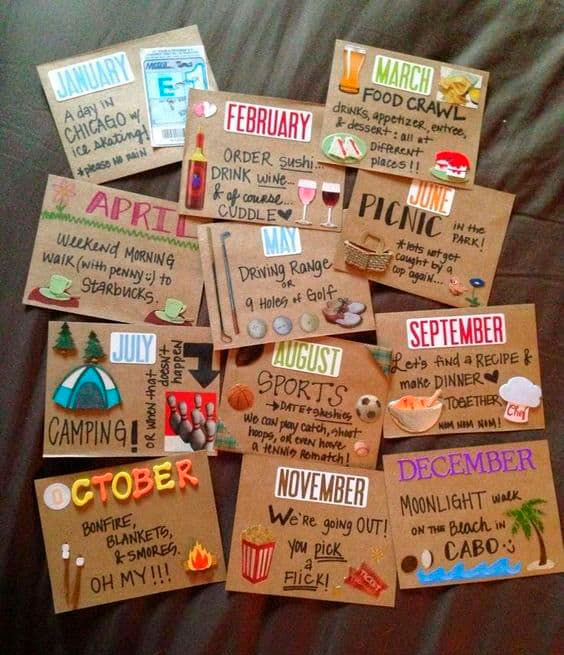 JANUARY
A day in
CHICAGO w/
ice skating!
*please no rain
METRA
E-1
FEBRUARY
ORDER sushi...
DRINK wine...
& of course...
CUDDLE
MARCH
FOOD CRAWL
drinks, appetizer, entree,
& dessert : all at
Different
places!!
APRIL
Weekend Morning
walk (with penny :) to
Starbucks.
MAY
Driving Range
or
9 Holes of Golf
JUNE
PICNIC in the
PARK!
*lets not get
caught by a
cop again...
JULY
CAMPING!
or when that
doesn't
happen
AUGUST
SPORTS
→DATE
We can play catch, shoot
hoops, or even have
a tennis rematch!
SEPTEMBER
Let's find a RECIPE &
make DINNER
TOGETHER
NOM NOM NOM!
Chef
OCTOBER
BONFIRE,
BLANKETS,
& SMORES.
OH MY!!!
NOVEMBER
We're going OUT!
You pick
a
Flick!
DECEMBER
MOONLIGHT walk
ON THE Beach in
CABO :)